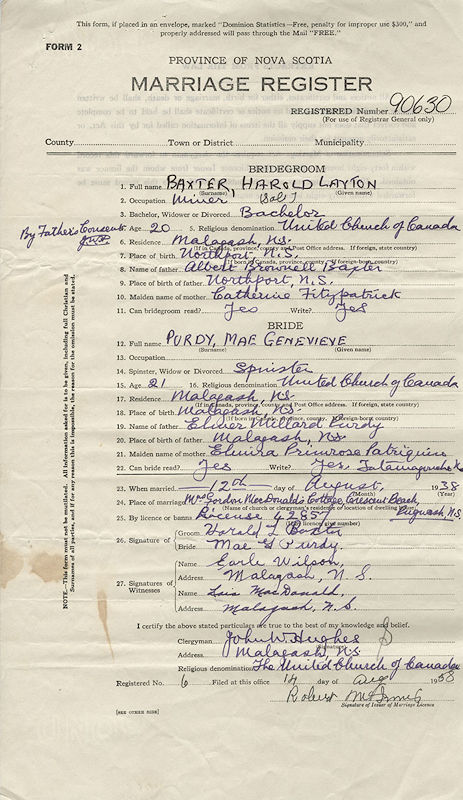 This form, if placed in an envelope, marked "Dominion Statistics—Free, penalty for improper use $300," and
properly addressed will pass through the Mail "FREE."
FORM 2
PROVINCE OF NOVA SCOTIA
MARRIAGE REGISTER
REGISTERED Number 90630
(For use of Registrar General only)
County Town or District Municipality
BRIDEGROOM
1. Full name BAXTER, HAROLD LAYTON
(Surname) (Given name)
2. Occupation Miner (Salt)
3. Bachelor, Widower or Divorced Bachelor
By Father's Consent
4. Age 20 5. Religious denomination United Church of Canada
6. Residence Malagash, NS.
(If in Canada, province, county and Post Office address. If foreign, state country)
7. Place of birth Northport, N.S.
(If born in Canada, province, county. If foreign, state country)
8. Name of father Albert Brownell Baxter
9. Place of birth of father Northport, N.S.
10. Maiden name of mother Catherine Fitzpatrick
11. Can bridegroom read? Yes Write? Yes
BRIDE
12. Full name PURDY, MAE GENEVIEVE
(Surname) (Given name)
13. Occupation
14. Spinster, Widow or Divorced Spinster
15. Age 21 16. Religious denomination United Church of Canada
17. Residence Malagash, NS
(If in Canada, province, county and Post Office address. If foreign, state country)
18. Place of birth Malagash, NS.
(If born in Canada, province, county. If foreign, state country)
19. Name of father Elmer Millard Purdy
20. Place of birth of father Malagash, NS.
21. Maiden name of mother Elmira Primrose Patriquin
22. Can bride read? Yes Write? Yes, Tatamagouche
23. When married 12th day of August, 1938
(Month) (Year)
24. Place of marriage Mrs Gordon MacDonald's Cottage, Crescent Beach,
(Name of church or clergyman's residence or location of dwelling)
Pugwash, NS.
25. By licence or banns License 42857
(If by licence give number)
26. Signature of
Groom Harold L Baxter
Bride Mae G Purdy.
27. Signatures of Witnesses
Name Earle Wilson,
Address Malagash, N.S.
Name Lois MacDonald,
Address Malagash, N.S.
I certify the above stated particulars are true to the best of my knowledge and belief.
Clergyman John W Hughes
(Signature)
Address Malagash, NS
Religious denomination The United Church of Canada
Registered No. 6 Filed at this office 14 day of Aug 1938
Robert
Signature of Issuer of Marriage Licence
[SEE OTHER SIDE]
NOTE—This form must not be mutilated. All information asked for is to be given, including full Christian and
Surnames of all parties, and if for any reason this is impossible, the reason for the omission must be stated.